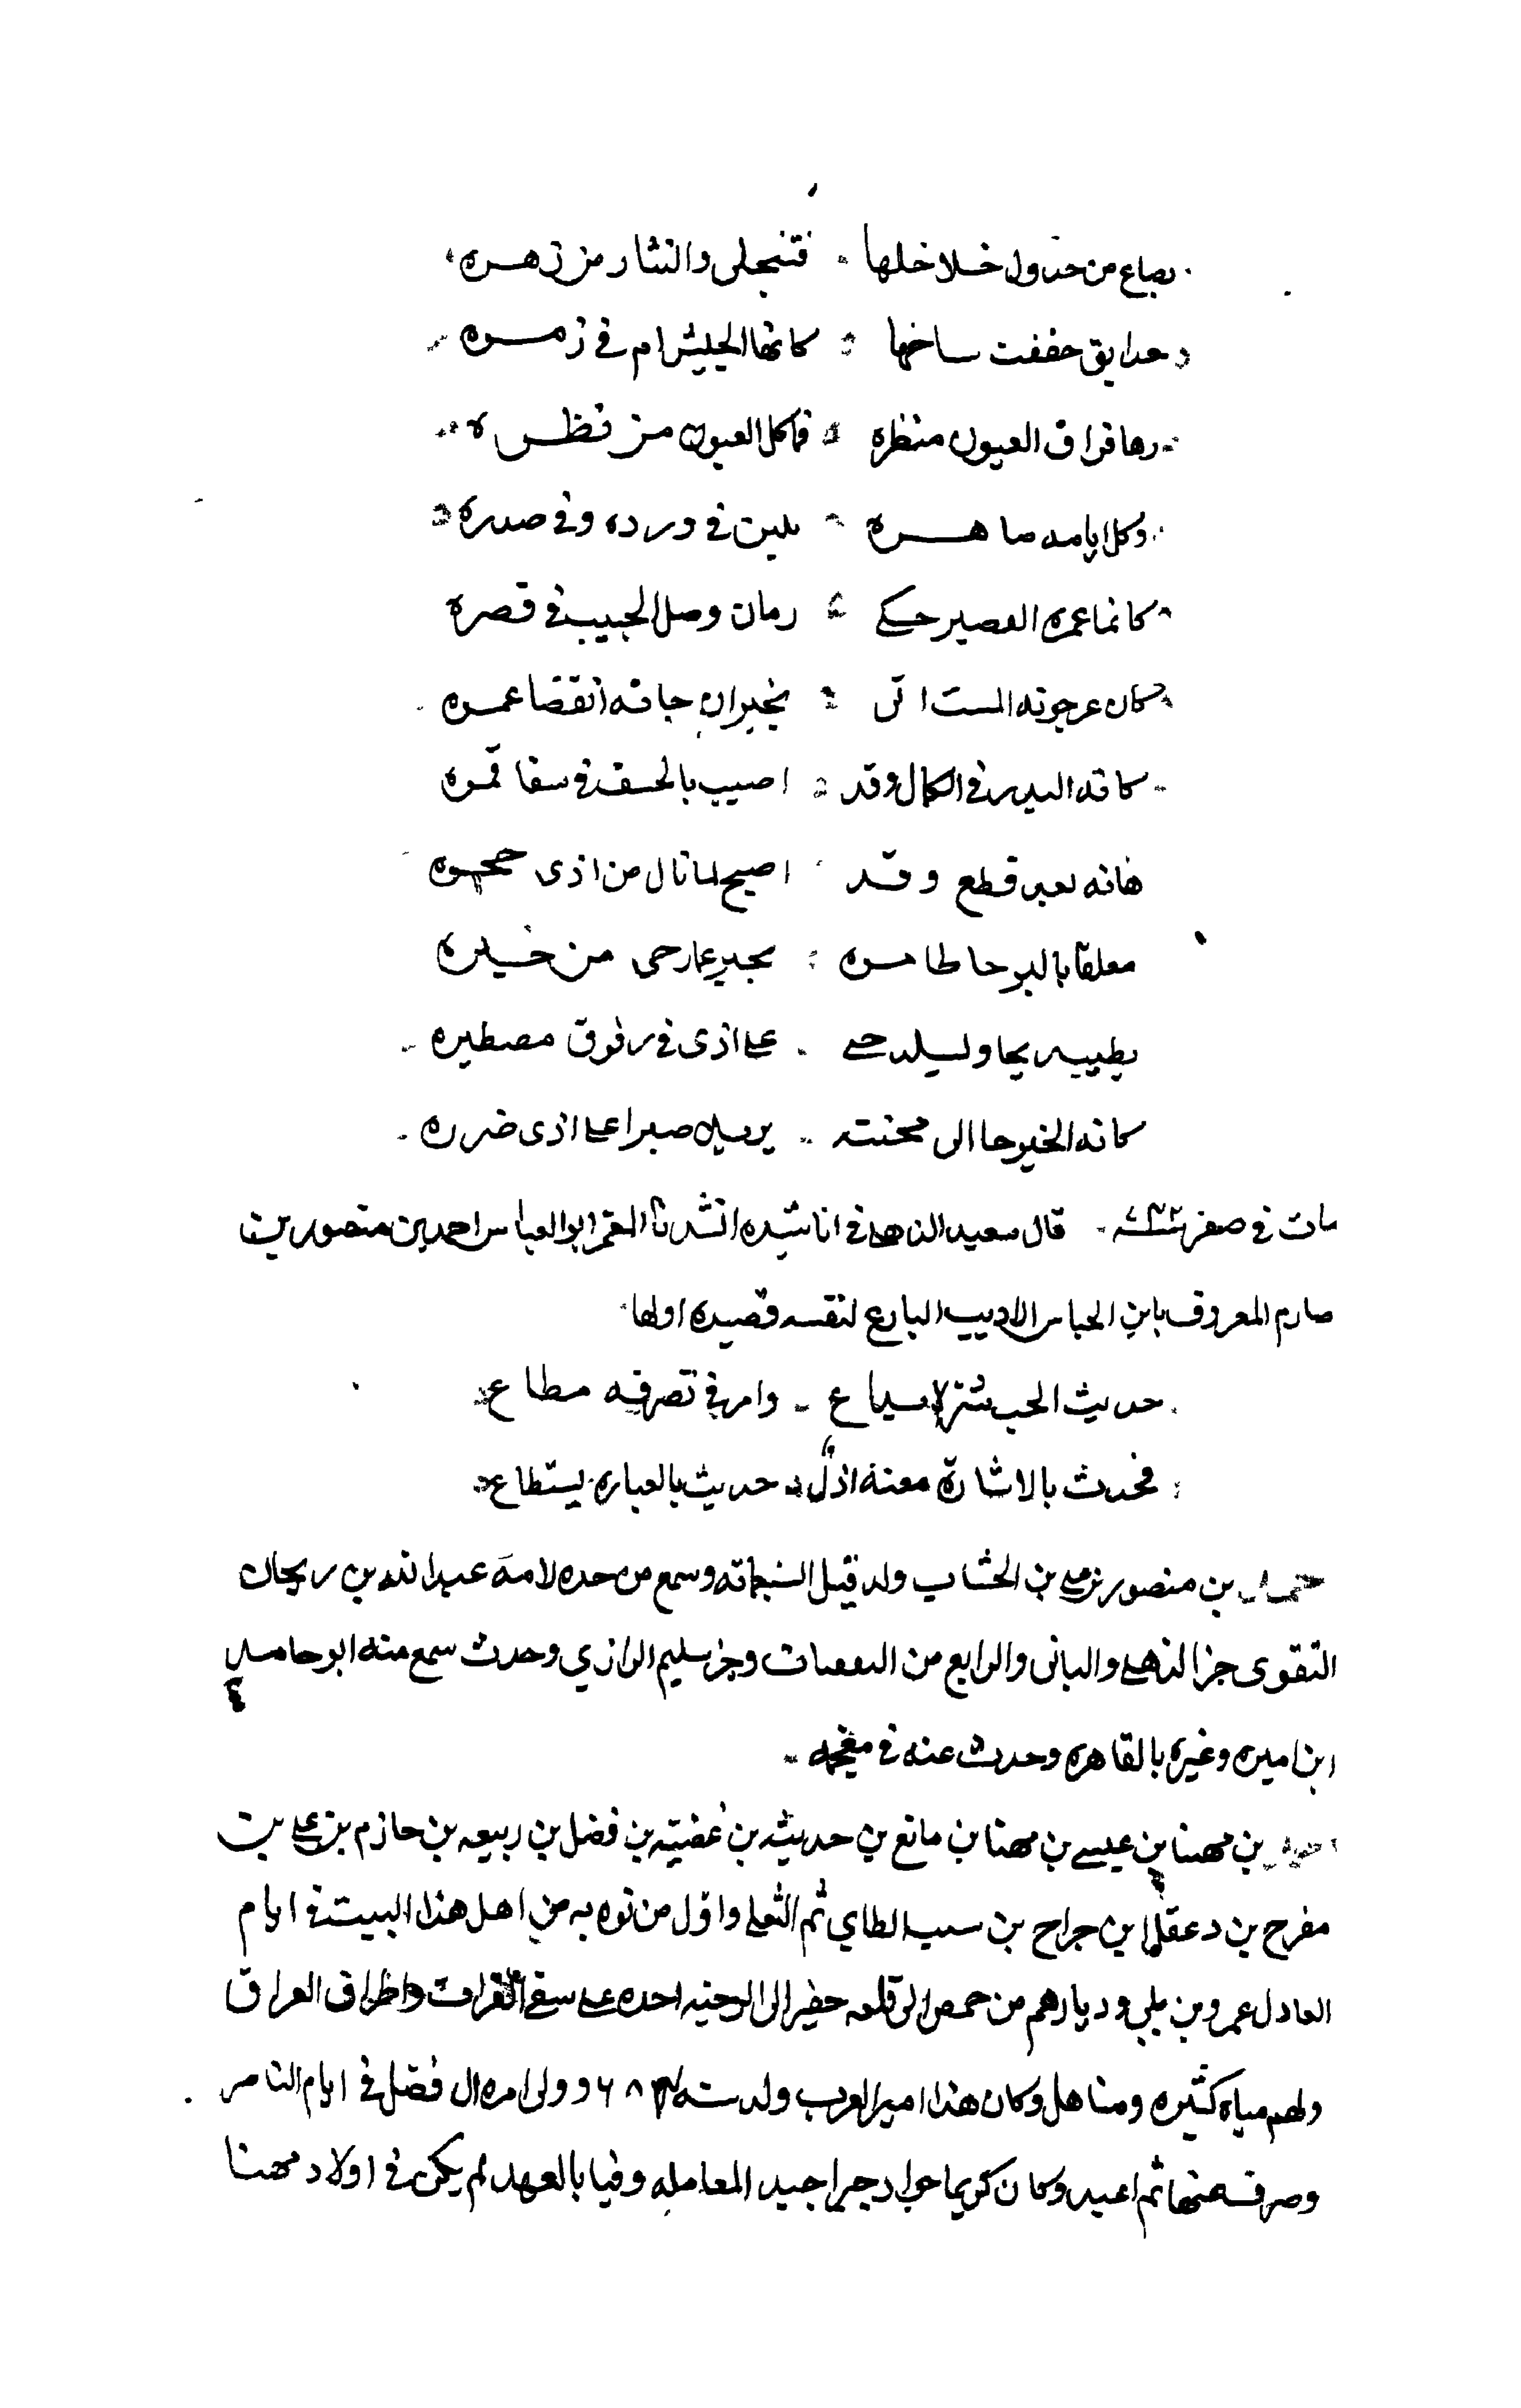 يصاغ من جدول خلاخلها فتنجلى والنثار من زهره
حدايق حففت ساخها كانها الجيش ام في زمره
رها فراق العيون منظره فاكل العيون من نظره
وكل ايامه ما هره يلين في ورده وفي صدره
كانما عمره القصير حكى زمان وصل الحبيب في قصره
كان عرجونه المست اتى يخبران جاته انقضا عمره
كانه البدر في الكمال وقد اصيب بالخسف في سفا قمره
فانه بعد قطع وقد اصبح لما نال من اذى حجره
معلقا بالبرحا ظاهره يخبر عما رحى من خبره
يطيب ريحا وليلد حى على اذى في رفوق مصطبره
كانه الخير حاالى محنته يريد صبرا على اذى ضرره
مات في صفر سنة ٧٣٢ قال سعيد الذهلى في اناشيده انشدنا المقر ابو العباس احمد بن منصور بن
صارم المعروف بابن الحباس الاديب البارع لنفسه قصيده اولها
حديث الحب سر لا يساع وامر في تصرفه مطاع
فحدث بالاشارة معنه اذل حديث بالعباره يستطاع
احمد بن منصور بن على بن الخشاب ولد قبل السبعماته وسمع من جده لامه عبد الله بن ريحان
التقوى جزا الذهلى والثانى والرابع من الثقفيات وجز سليم الرازي وحدث سمع منه ابو حامد
ابن ظهيره وغيره بالقاهره وحدث عنه في معجمه
احمد بن مهنا بن عيسى بن مهنا بن مانع بن حديثه بن غضيه بن فضل بن ربيعه بن حازم بن على بن
مفرح بن دغفل ابن جراح بن سبب الطاي ثم الثعلى واول من نوه به من اهل هذا البيت في ايام
العادل عمرو بن بلى وديارهم من حمص الى قلعه جعبر الى الرحبه احده على سقى الفرات واطراف العراق
ولهم مياه كثيره ومناهل وكان هذا امير العرب ولد سنه ٦٨٤ وولى امره ال فضل في ايام الناصر
وصرف عنها ثم اعيد وكان كريما جواد خيرا جيد المعامله وفيا بالعهد لم يكن في اولاد مهنا